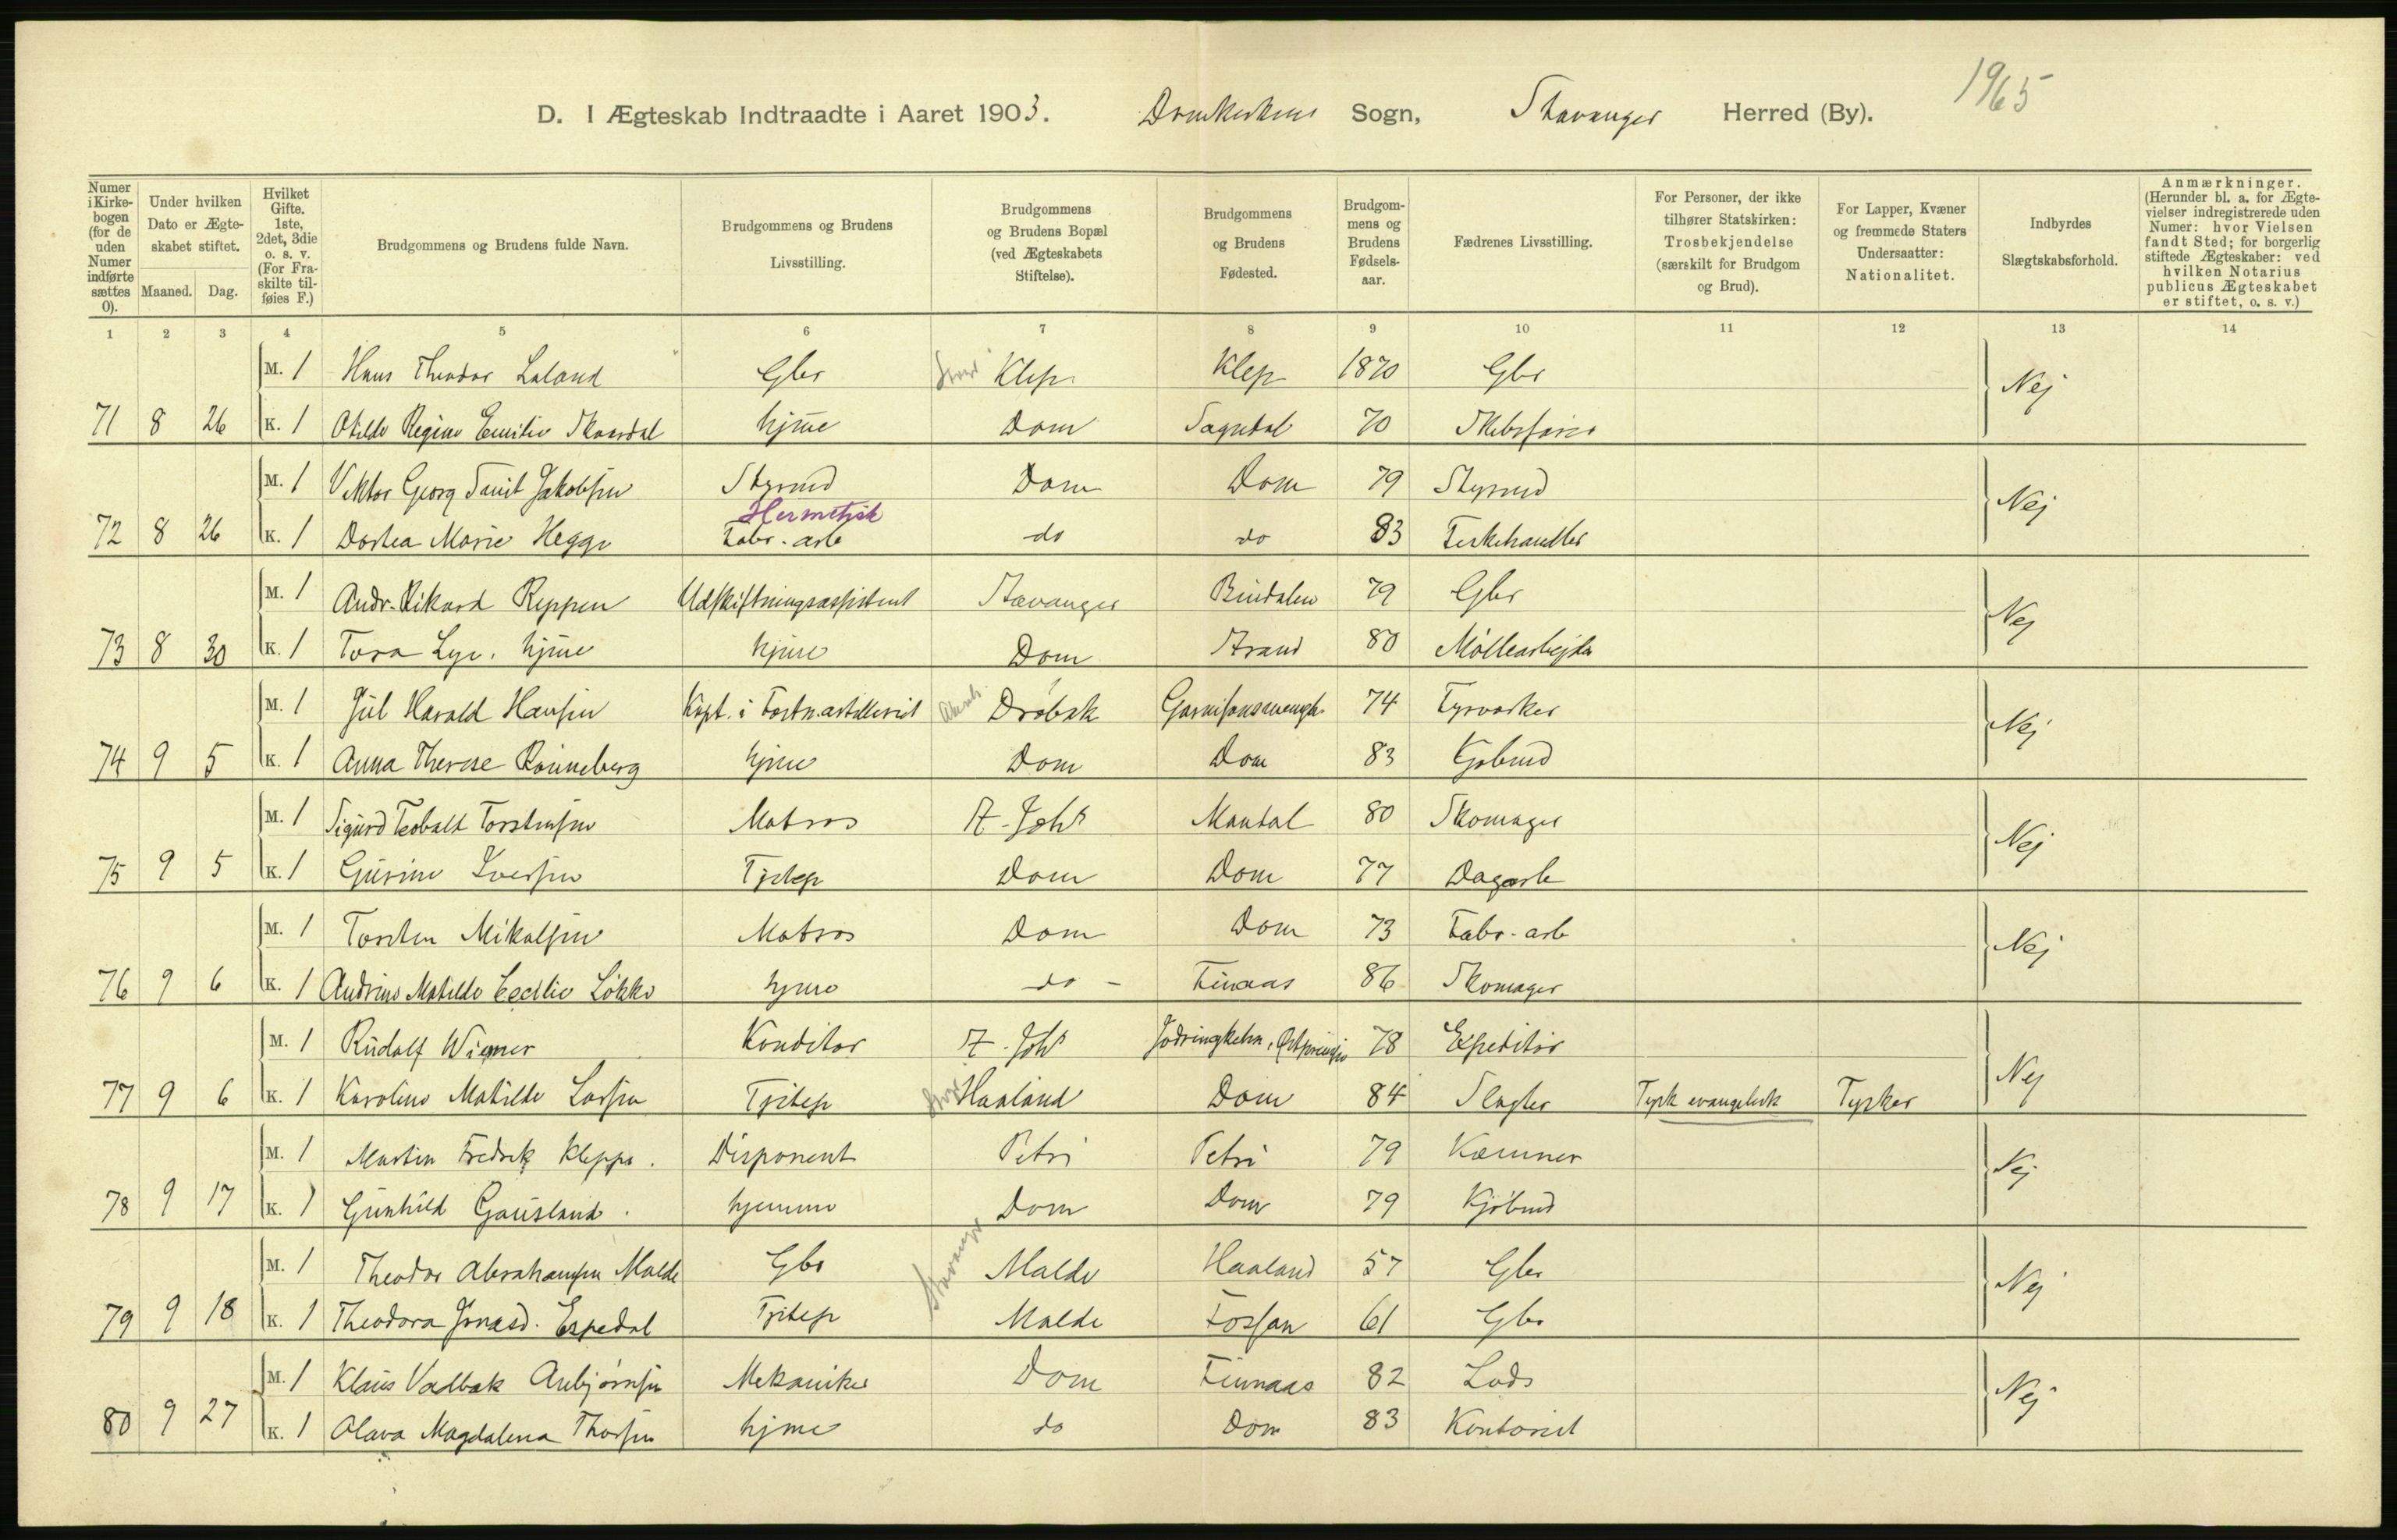 1965
D. I Ægteskab Indtraadte i Aaret 1903. Domkirkens Sogn, Stavanger Herred (By).
Numer i Kirkebogen (for de uden Numer indførte sættes 0).
Under hvilken Dato er Ægteskabet stiftet.
Maaned. Dag.
Hvilket Gifte. 1ste, 2det, 3die o. s. v. (For Fraskilte tilføies F.)
Brudgommens og Brudens fulde Navn.
Brudgommens og Brudens Livsstilling.
Brudgommens og Brudens Bopæl (ved Ægteskabets Stiftelse).
Brudgommens og Brudens Fødested.
Brudgommens og Brudens Fødselsaar.
Fædrenes Livsstilling.
For Personer, der ikke tilhører Statskirken: Trosbekjendelse (særskilt for Brudgom og Brud).
For Lapper, Kvæner og fremmede Staters Undersaatter: Nationalitet.
Indbyrdes Slægtskabsforhold.
Anmærkninger. (Herunder bl. a. for Ægtevielser indregistrerede uden Numer: hvor Vielsen fandt Sted; for borgerlig stiftede Ægteskaber: ved hvilken Notarius publicus Ægteskabet er stiftet, o. s. v.)
1 2 3 4 5 6 7 8 9 10 11 12 13 14
M. 1 Hans Theodor Laland Gbr Klep Klep 1870 Gbr Nej
71 8 26 K. 1 Otilde Regine Emilie Skaardal hjme Dom Sogndal 70 Skibsfører
M. 1 Viktor Georg Smit Jakobsen Styrmd Dom Dom 79 Styrmd Nej
Hermetisk
72 8 26 K. 1 Dortea Marie Hegge Fabr. arb do do 83 Fiskehandler
M. 1 Andr. Rikard Reppen Udskiftningsassistent Stavanger Bindalen 79 Gbr Nej
73 8 30 K. 1 Tora Lye. hjme hjme Dom Strand 80 Møllearbejder
M. 1 Jul Harald Hansen Kapt. i Festn.artilleriet Drøbak 74 Fyrvokter Nej
74 9 5 K. 1 Anna Therese Rønneberg hjme Dom Dom 83 Kjøbmd
M. 1 Sigurd Teobalt Torstensen Matros St. Johs Mandal 80 Skomager Nej
75 9 5 K. 1 Gurine Iversen Tjstep Dom Dom 77 Dagarb
M. 1 Torsten Mikalsen Matros Dom Dom 73 Fabr. arb Nej
76 9 6 K. 1 Andrine Matilde Cecilie Løkke hjme do - Finnaas 86 Skomager
M. 1 Rudolf Wiemer Konditor St. Johs 78 Expeditør Nej
77 9 6 K. 1 Karoline Matilde Larsen Tjstep Haaland Dom 84 Slagter Tysk evangelisk Tysker
M. 1 Martin Fredrik Kleppe. Disponent Petri Petri 79 Kæmner Nej
78 9 17 K. 1 Gunhild Gausland. hjemme Dom Dom 79 Kjøbmd
Stavanger
M. 1 Theodor Abrahamsen Malde Gbr Malde Haaland 57 Gbr Nej
79 9 18 K. 1 Theodora Jonasd. Espedal Tjstep Malde Fossan 61 Gbr
M. 1 Klaus Vadbak Anbjørnsen Mekaniker Dom Finnaas 82 Lods Nej
80 9 27 K. 1 Olava Magdalena Thorsen hjme do Dom 83 Kontorist